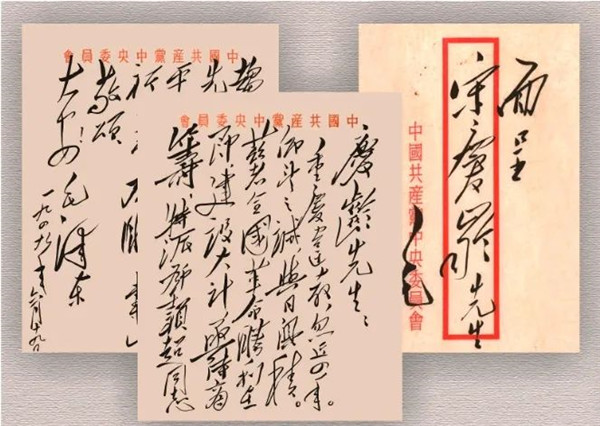 面呈
宋慶齡先生
中國共産黨中央委員會
中國共産黨中央委員會
慶齡先生：
重慶違教，忽近四年。
仰望之誠與日俱積。
兹者全國革命勝利在
即，建設大計，亟待商
籌，特派鄧穎超同志
中國共産黨中央委員會
趨
先
平
祈
敬頌
大安！毛澤东
一九四九年六月十九日